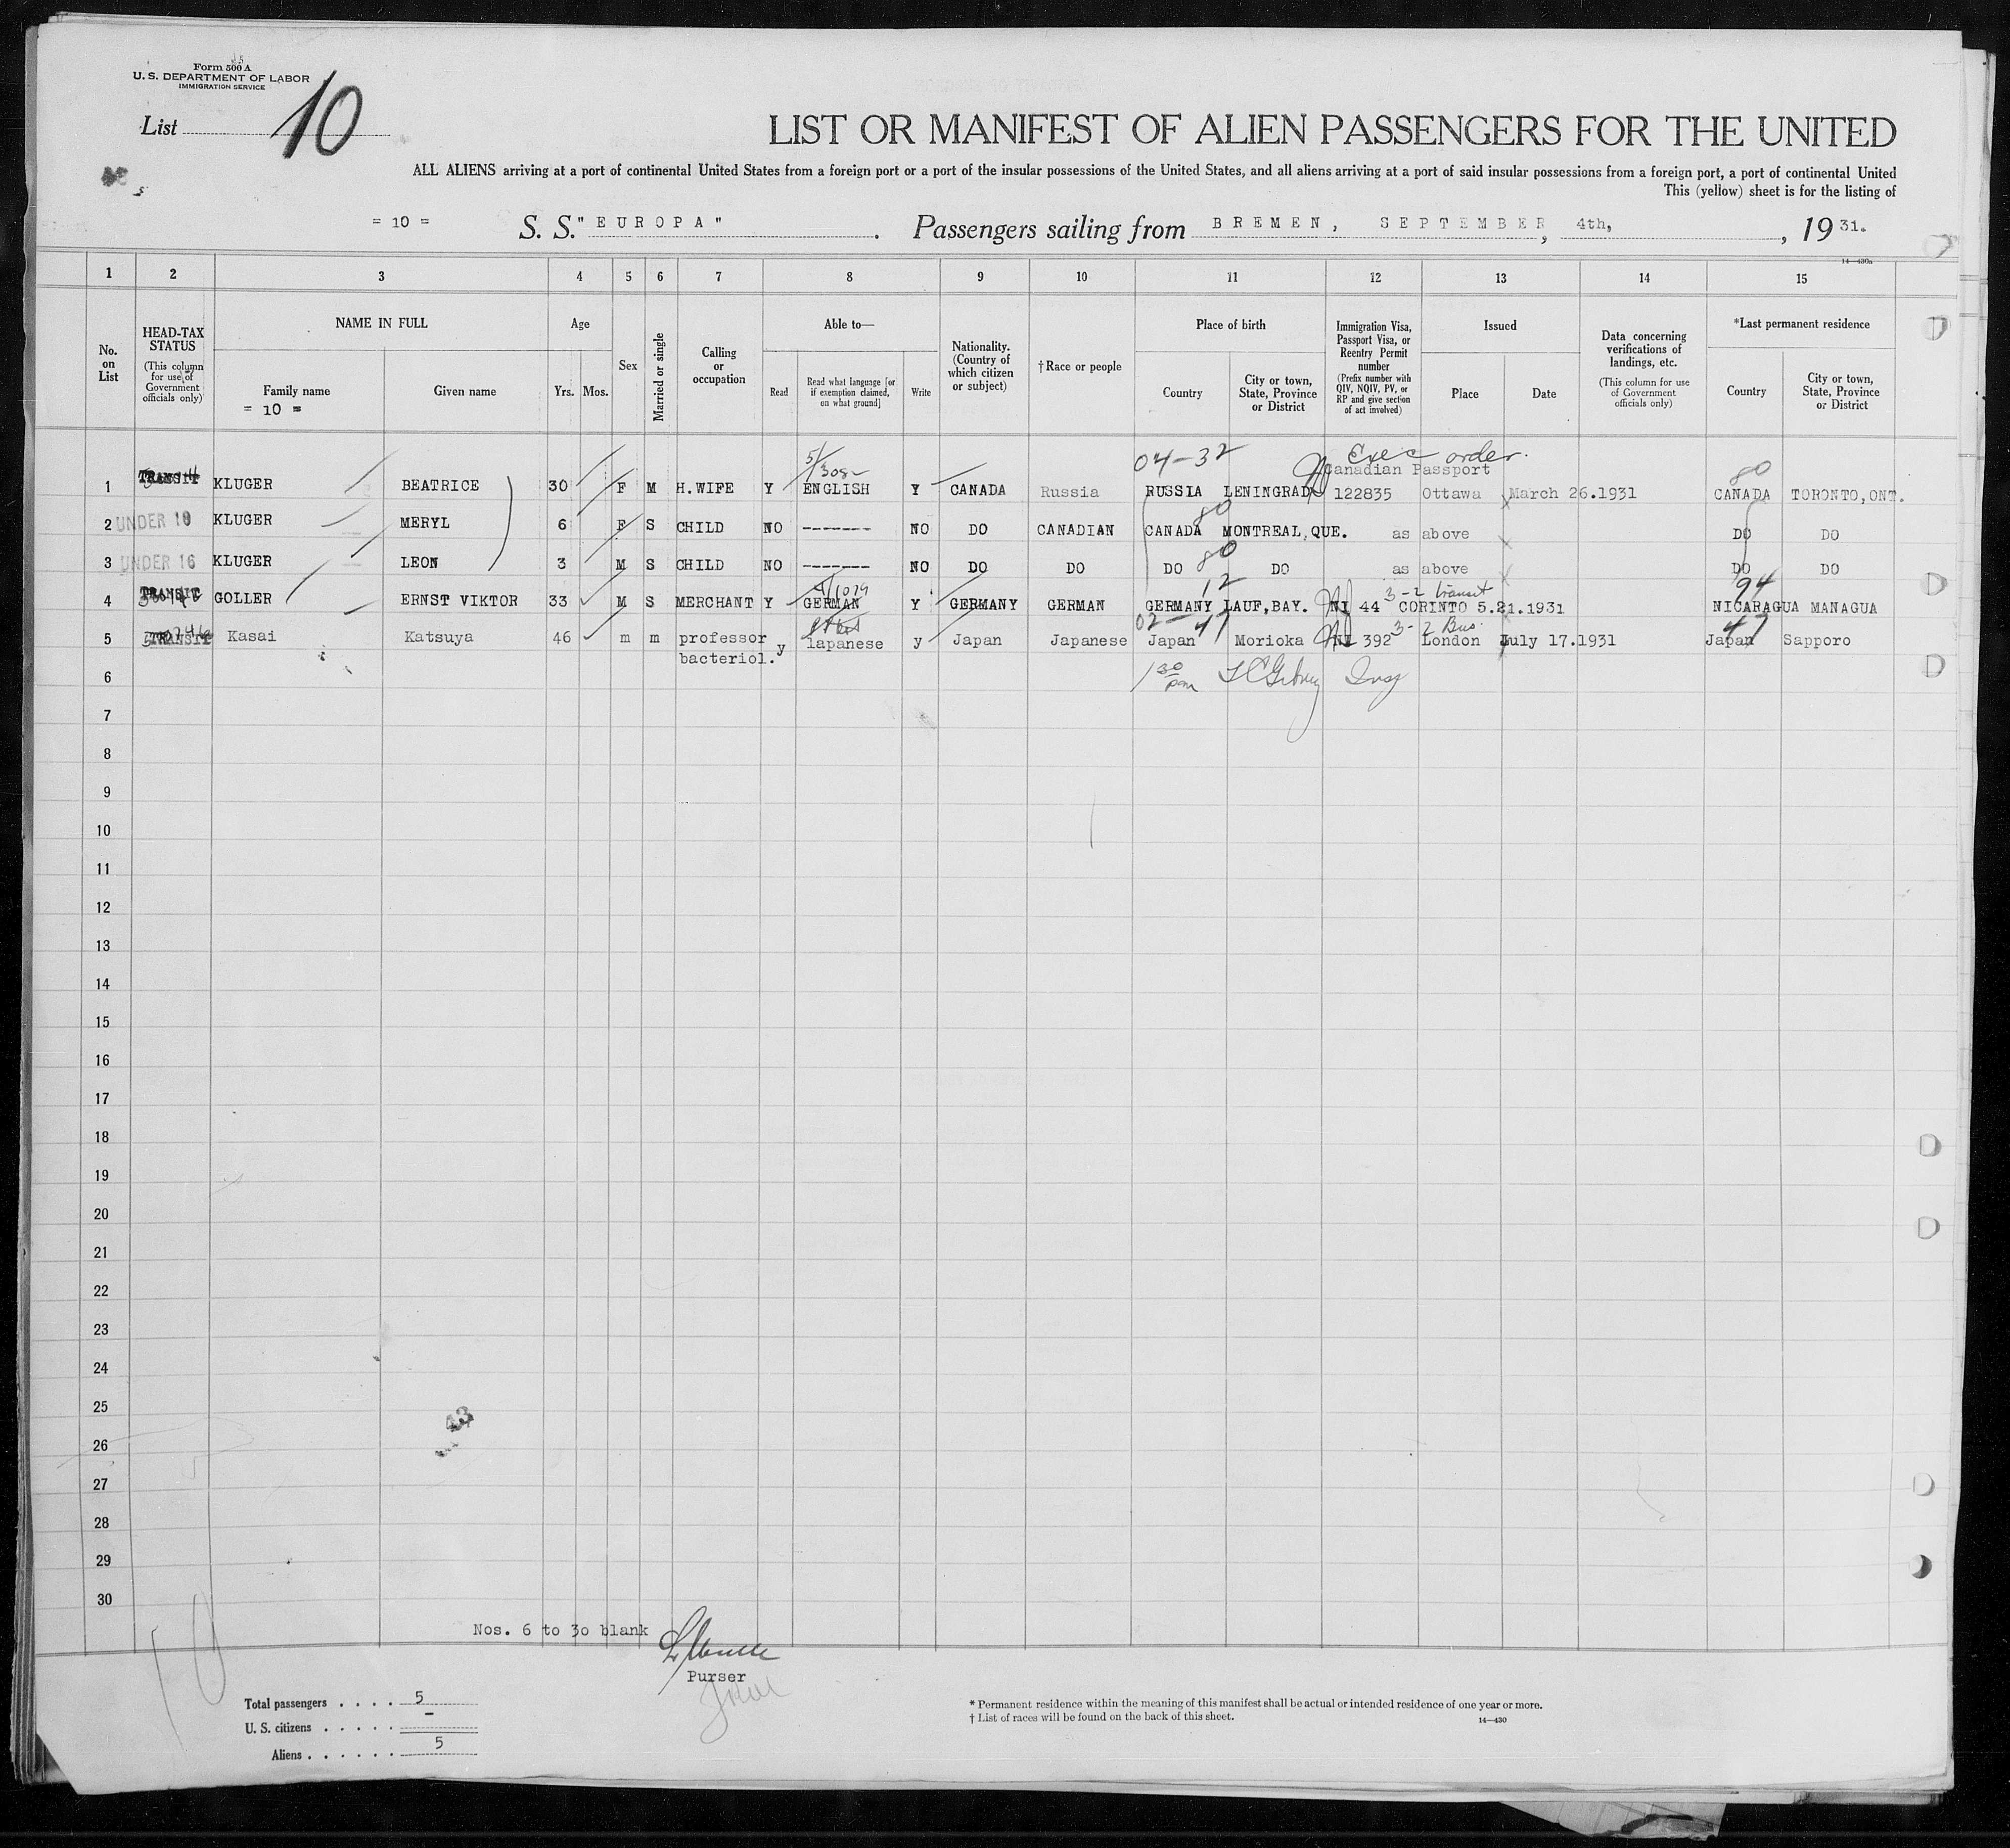 Form 500 A
U. S. DEPARTMENT OF LABOR
IMMIGRATION SERVICE
List 10
LIST OR MANIFEST OF ALIEN PASSENGERS FOR THE UNITED
ALL ALIENS arriving at a port of continental United States from a foreign port or a port of the insular possessions of the United States, and all aliens arriving at a port of said insular possessions from a foreign port, a port of continental United
This (yellow) sheet is for the listing of
= 10 = S. S. "EUROPA". Passengers sailing from BREMEN, SEPTEMBER, 4th, , 1931.
14—430a
1 2 3 4 5 6 7 8 9 10 11 12 13 14 15
No. on List
HEAD-TAX STATUS
(This column for use of Government officials only)
NAME IN FULL
Family name
= 10 =
Given name
Age
Yrs. Mos.
Sex
Married or single
Calling or occupation
Able to—
Read
Read what language [or if exemption claimed, on what ground]
Write
Nationality. (Country of which citizen or subject)
† Race or people
Place of birth
Country
City or town, State, Province or District
Immigration Visa, Passport Visa, or Reentry Permit number
(Prefix number with QIV, NQIV, PV, or RP and give section of act involved)
Issued
Place
Date
Data concerning verifications of landings, etc.
(This column for use of Government officials only)
*Last permanent residence
Country
City or town, State, Province or District
5/308 04-32 Exec order.
Canadian Passport 80
1 TRANSIT KLUGER BEATRICE 30 F M H.WIFE Y ENGLISH Y CANADA Russia RUSSIA LENINGRAD 122835 Ottawa March 26.1931 CANADA TORONTO,ONT.
80
2 UNDER 16 KLUGER MERYL 6 F S CHILD NO ------- NO DO CANADIAN CANADA MONTREAL,QUE. as above DO DO
80
3 UNDER 16 KLUGER LEON 3 M S CHILD NO ------- NO DO DO DO DO as above DO DO
12 3-2 transit 94
4 TRANSIT GOLLER ERNST VIKTOR 33 M S MERCHANT Y GERMAN Y GERMANY GERMAN GERMANY LAUF,BAY. NI 44 CORINTO 5.21.1931 NICARAGUA MANAGUA
02-47 3-2 Bus. 47
5 TRANSIT Kasai Katsuya 46 m m professor bacteriol. y Iapanese y Japan Japanese Japan Morioka NI 392 London July 17.1931 Japan Sapporo
6 1 30 pm Insp
7
8
9
10
11
12
13
14
15
16
17
18
19
20
21
22
23
24
25
43
26
27
28
29
30
Nos. 6 to 30 blank
Purser
10
Total passengers . . . . 5
U. S. citizens . . . . . –
Aliens . . . . . . 5
* Permanent residence within the meaning of this manifest shall be actual or intended residence of one year or more.
† List of races will be found on the back of this sheet.
14—430